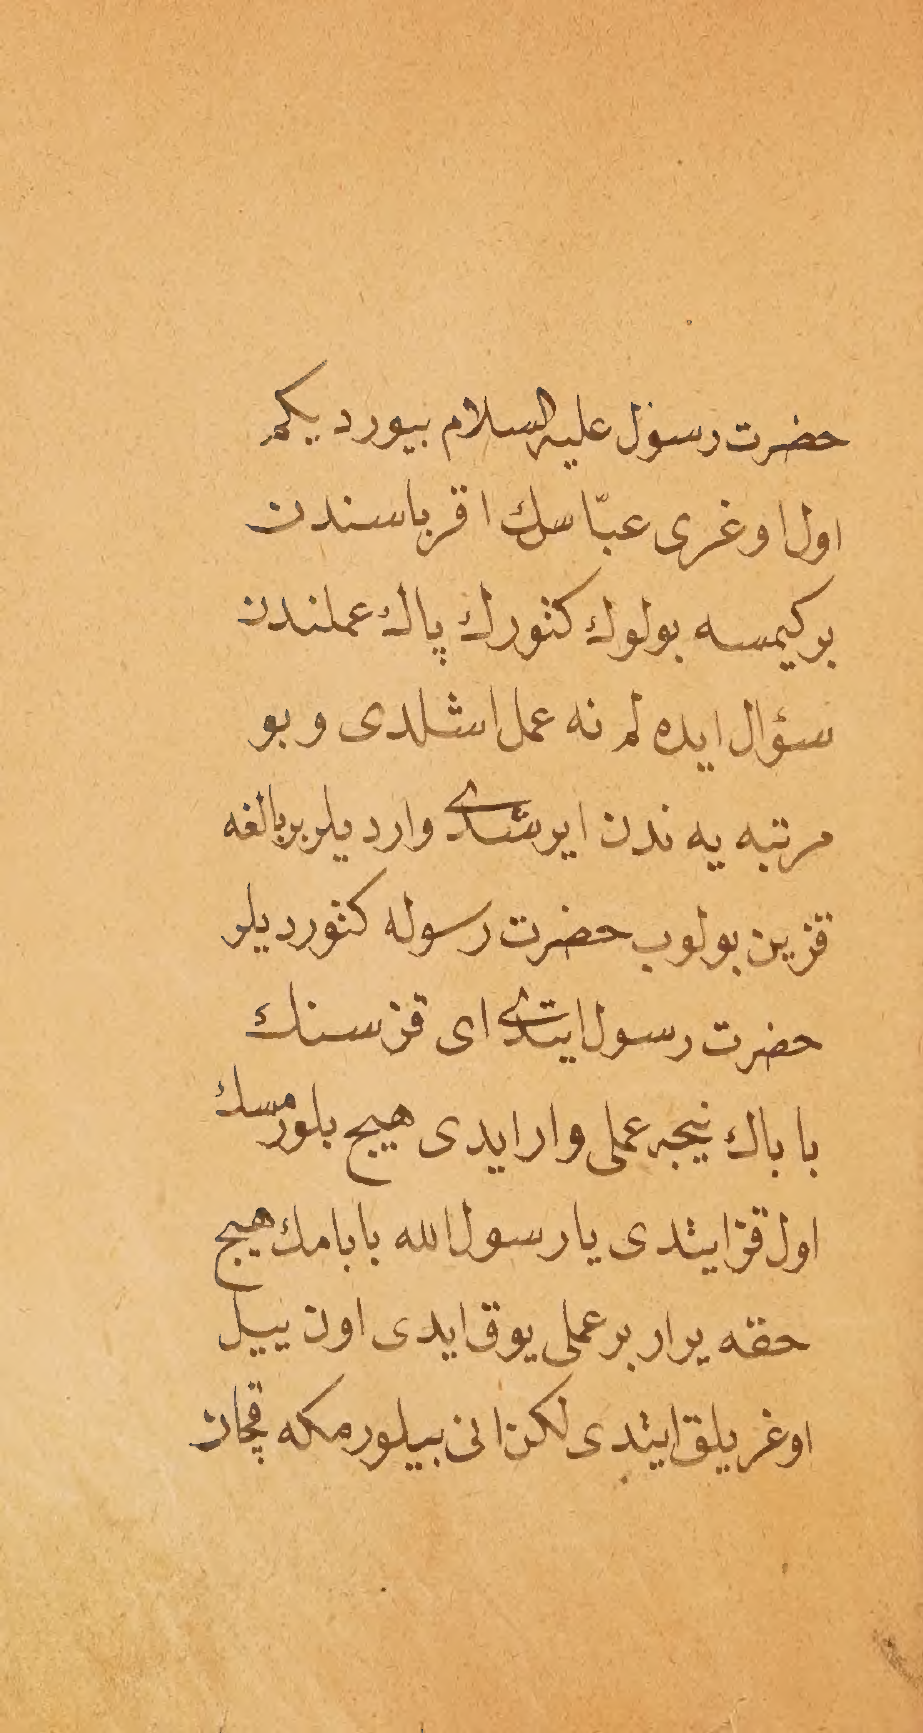 حضرت رسول عليه السلام بيوردیکم
اول اوغری عبّاسك اقرباسندن
بر كیمسه بولوك كتورك پاك عملندن
سؤال ایده لم نه عمل اشلدی و بو
مرتبه یه ندن ایرشدی واردیلر بر بالغه
قزین بولوب حضرت رسوله كتوردیلر
حضرت رسول ایتدی ای قز سنك
باباك نیجه عملی وار ایدی هیچ بلورمسك
اول قز ایتدی یا رسول الله بابامك هیچ
حقه یرار بر عملی یوق ایدی اون ییل
اوغریلق ایتدی لكن انی بیلورمكه قچان